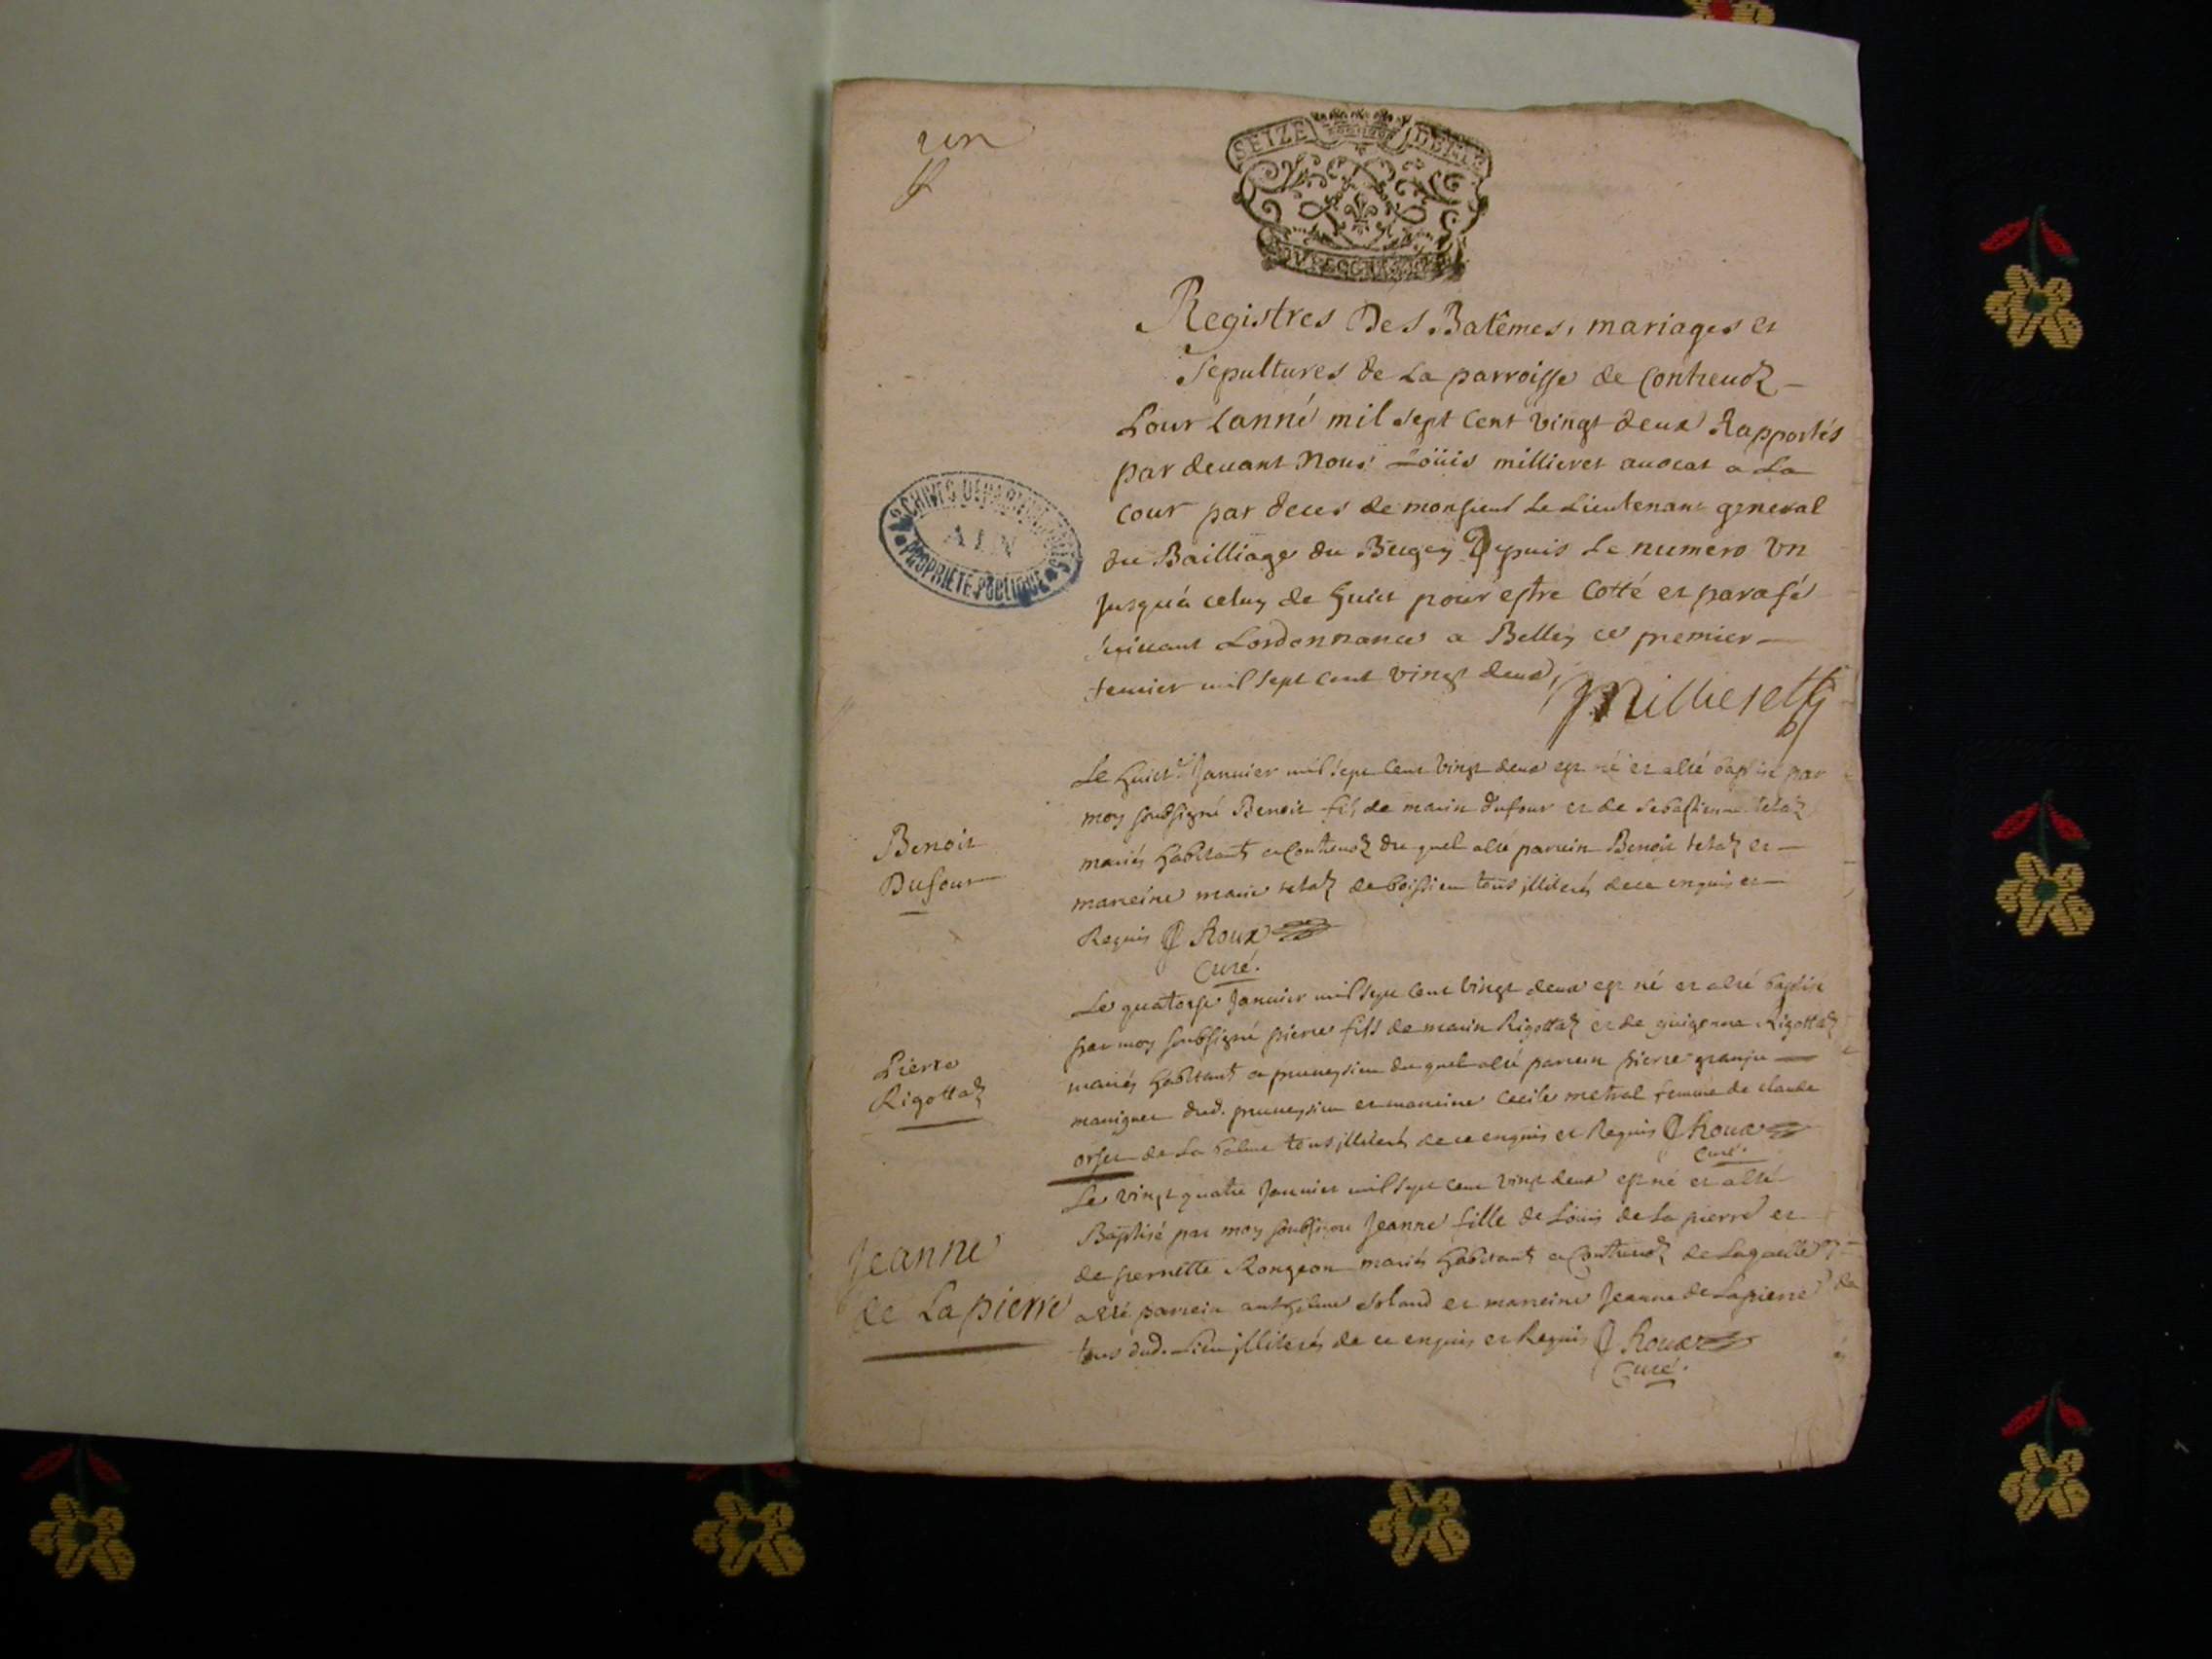 un
SEIZE DEN
Registres Des Batêmes, mariages et
Sepultures de La parroisse de Contrevoz
Pour Lanné mil sept Cent vingt deux Rapportés
par devant Nous Loüis millieret avocat a La
Cour par deces de monsieur Le Lieutenant general
du Bailliage du Bugey Depuis Le numero vn
Jusqu'a celuy de huict pour estre Cotté et parafé
suivant Lordonnance a Belley ce premier
mil sept cent vingt deux,
Millieret
ARCHIVES DEPARTEMENTALES
AIN
PROPRIETE PUBLIQUE
Benoit
Dufour
Le huict Januier mil sept Cent vingt deux est né et a été baptisé par
moy soubsigné Benoit fils de marin dufour et de Sebastienne tetaz
mariés habitants a Contrevoz du quel a été parrein Benoit tetaz et
marreine marie tetaz de boissieu tous illiterés de ce enquis et
Requis Roux
Curé.
Pierre
Rigottaz
Le quatorze Januier mil sept cent vingt deux est né et a été baptisé
par moy soubsigné pierre fils de marin Rigottaz et de Rigottaz
mariés habitants a pruneysieu du quel a été parrein pierre
dud. pruneysieu et marreine Cecile metral femme de claude
orset de La balme tous illiterés de ce enquis et Requis Roux
Curé.
Jeanne
de Lapierre
Le vingt quatre Januier mil sept cent vingt deux est né et a été
Baptisé par moy soubsigné Jeanne fille de Loüis de La pierre et
de pernette Rongeon mariés habitants a Contrevoz de Laquelle
a été parrein anthelme et marreine Jeanne de Lapierre
tous dud. Lieu illiterés de ce enquis et Requis Roux
Curé.